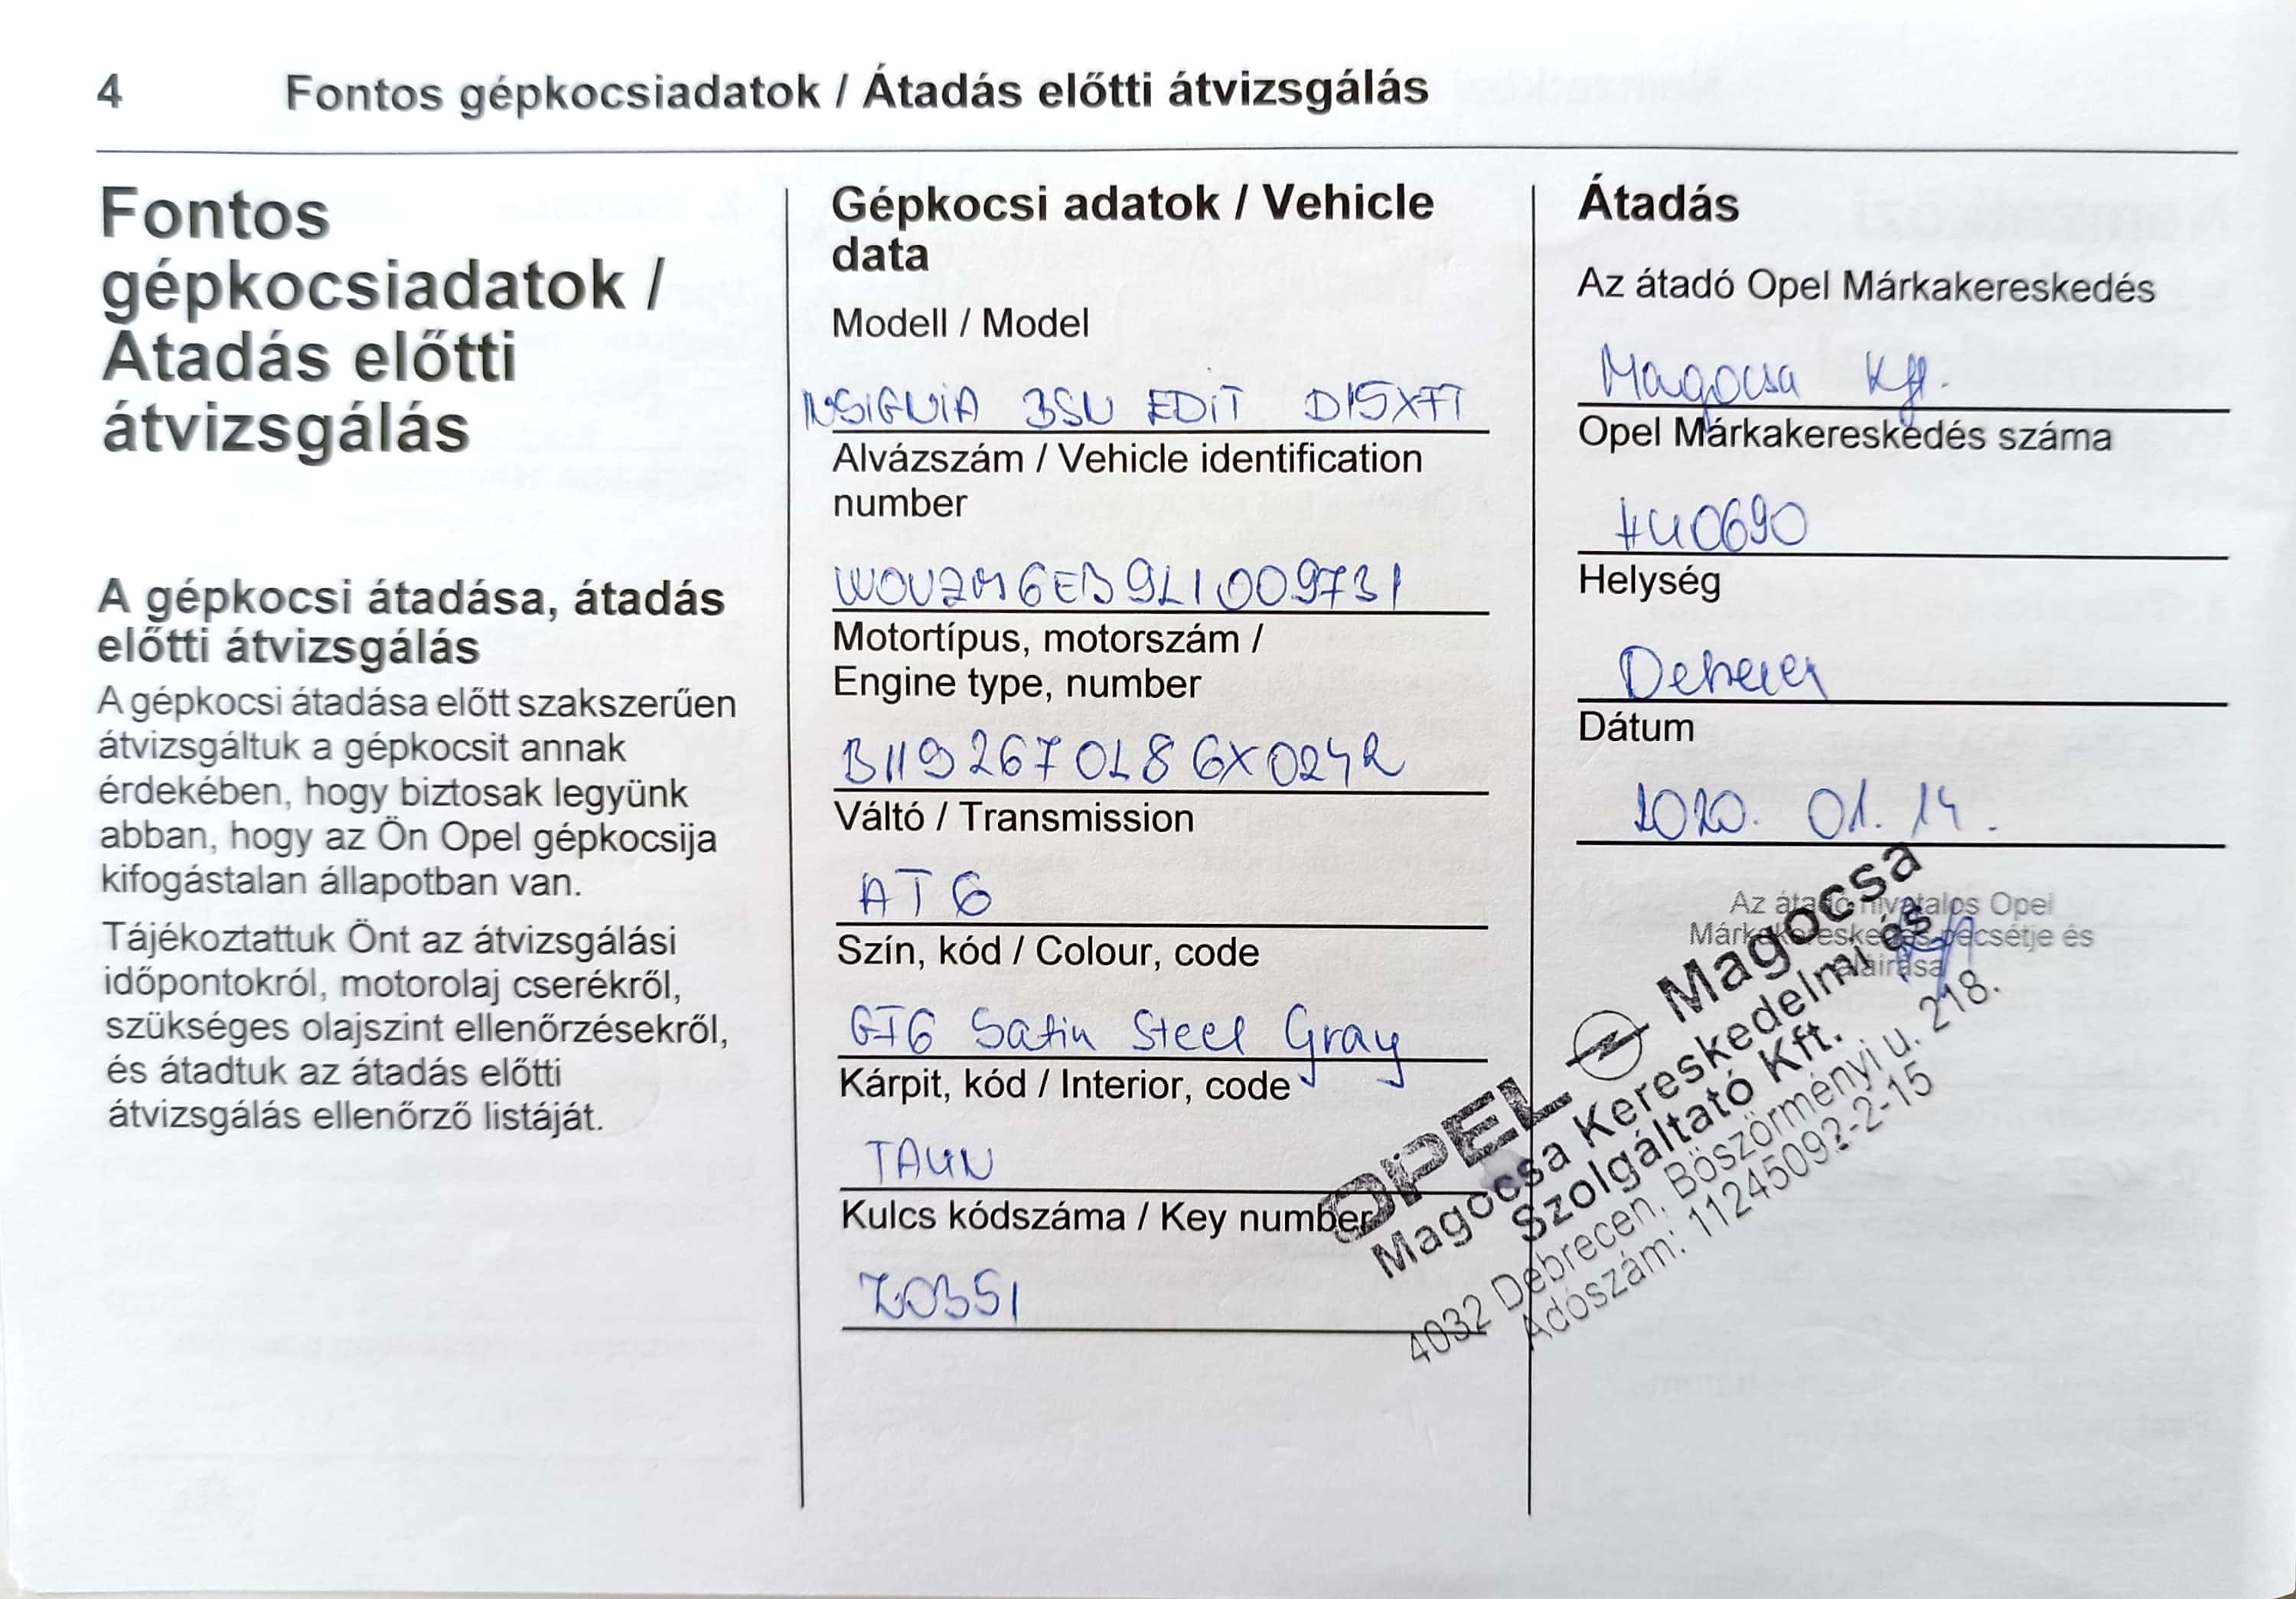 4 Fontos gépkocsiadatok / Átadás előtti átvizsgálás
Fontos
gépkocsiadatok /
Átadás előtti
átvizsgálás
A gépkocsi átadása, átadás
előtti átvizsgálás
A gépkocsi átadása előtt szakszerűen
átvizsgáltuk a gépkocsit annak
érdekében, hogy biztosak legyünk
abban, hogy az Ön Opel gépkocsija
kifogástalan állapotban van.
Tájékoztattuk Önt az átvizsgálási
időpontokról, motorolaj cserékről,
szükséges olajszint ellenőrzésekről,
és átadtuk az átadás előtti
átvizsgálás ellenőrző listáját.
Gépkocsi adatok / Vehicle
data
Modell / Model
INSIGNIA BSN EDIT D15XFT
Alvázszám / Vehicle identification
number
W0VZM6EB9L1009731
Motortípus, motorszám /
Engine type, number
B119267018GX0242
Váltó / Transmission
AT6
Szín, kód / Colour, code
GF6 Satin Steel Gray
Kárpit, kód / Interior, code
TAUN
Kulcs kódszáma / Key number
Z0351
Átadás
Az átadó Opel Márkakereskedés
Magocsa Kft.
Opel Márkakereskedés száma
HU0690
Helység
Debrecen
Dátum
2020. 01. 14.
Az átadó hivatalos Opel
Márkakereskedés pecsétje és
aláírása
OPEL Magocsa
Magocsa Kereskedelmi és
Szolgáltató Kft.
4032 Debrecen, Böszörményi u. 218.
Adószám: 11245092-2-15